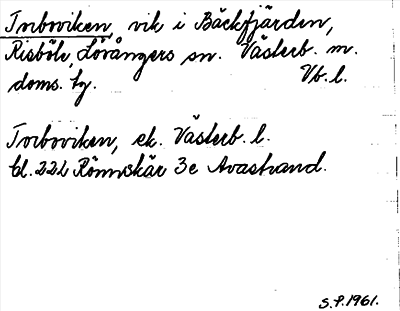 Torboviken, vik i Bäckfjärden,
Risböle, Lövångers sn. Västerb. m.
doms. tg. Vb. l.
Torboviken, ek. Västerb. l.
bl. 221 Rönnskär 3e Avastrand.
S.P. 1961.